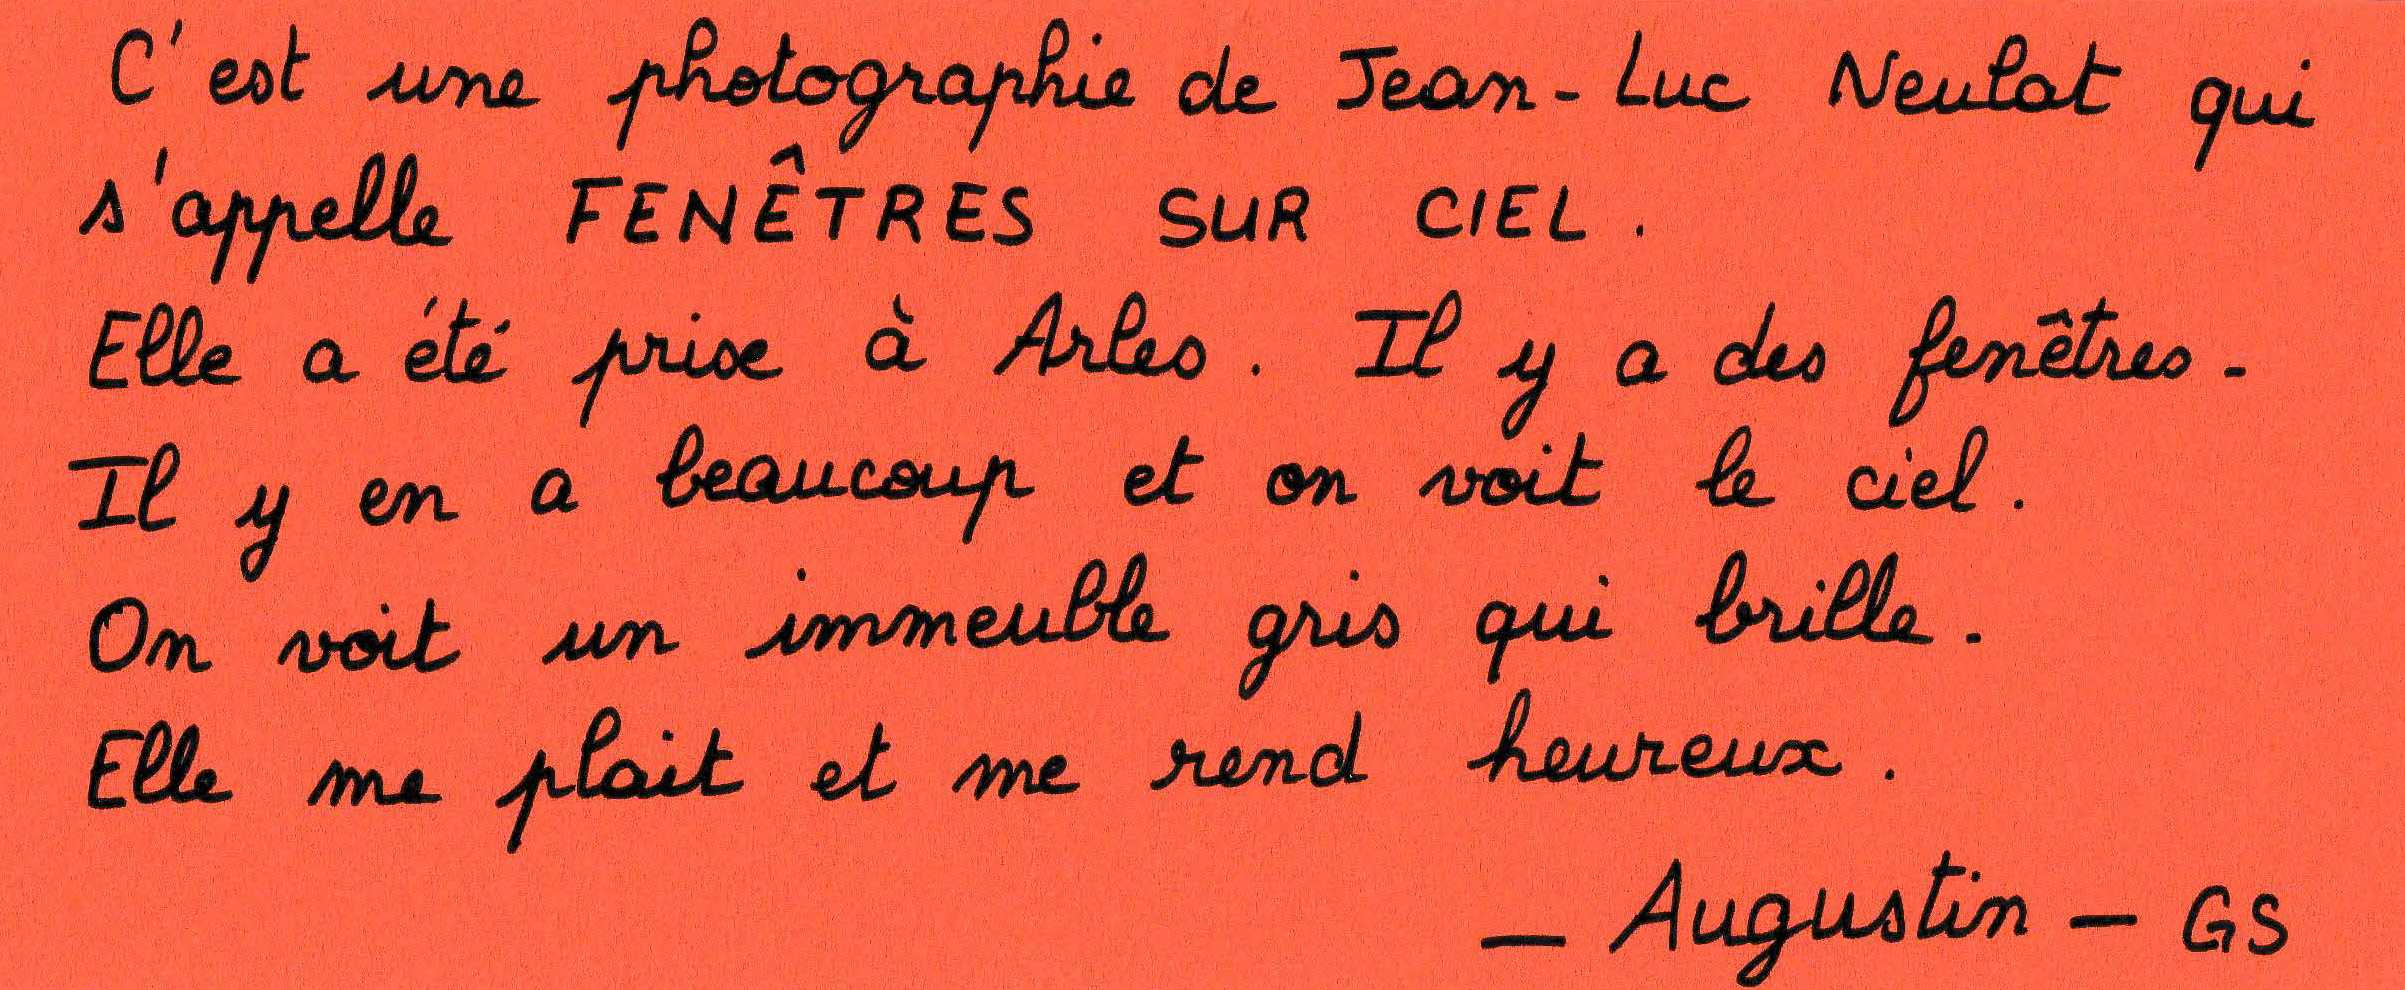 C'est une photographie de Jean-Luc Neulat qui
s'appelle FENÊTRES SUR CIEL.
Elle a été prise à Arles. Il y a des fenêtres.
Il y en a beaucoup et on voit le ciel.
On voit un immeuble gris qui brille.
Elle me plait et me rend heureux.
— Augustin — GS